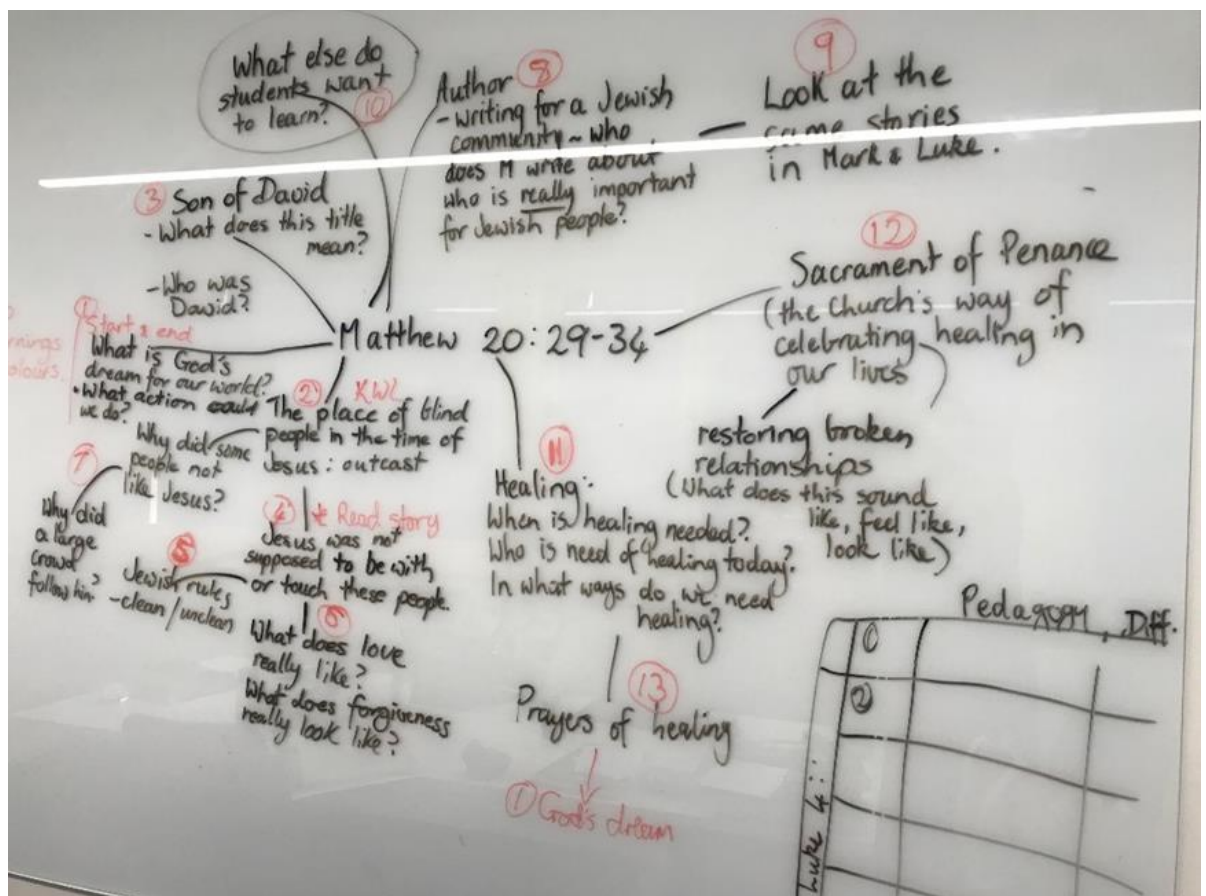 What else do
students want
to learn? 10
Author 8
- writing for a Jewish
community ~ who
does M write about
who is really important
for Jewish people?
9
Look at the
same stories
in Mark & Luke.
3 Son of David
- What does this title
mean?
- Who was
David?
Matthew 20:29-34
12
Sacrament of Penance
(the Church's way of
celebrating healing in
our lives
restoring broken
relationships
(What does this sound
like, feel like,
look like)
1
Start & end
What is God's
dream for our world?
• What action could
we do?
2 KWL
The place of blind
people in the time of
Jesus: outcast
Why did some
people not
like Jesus?
7
Why did
a large
crowd
follow him?
4 * Read story
Jesus was not
supposed to be with
or touch these people.
5
Jewish rules
- clean/unclean
6
What does love
really like?
What does forgiveness
really look like?
11
Healing:
When is healing needed?
Who is need of healing today?
In what ways do we need
healing?
13
Prayers of healing
1 God's dream
Pedagogy, Diff.
1
2
Luke 4: